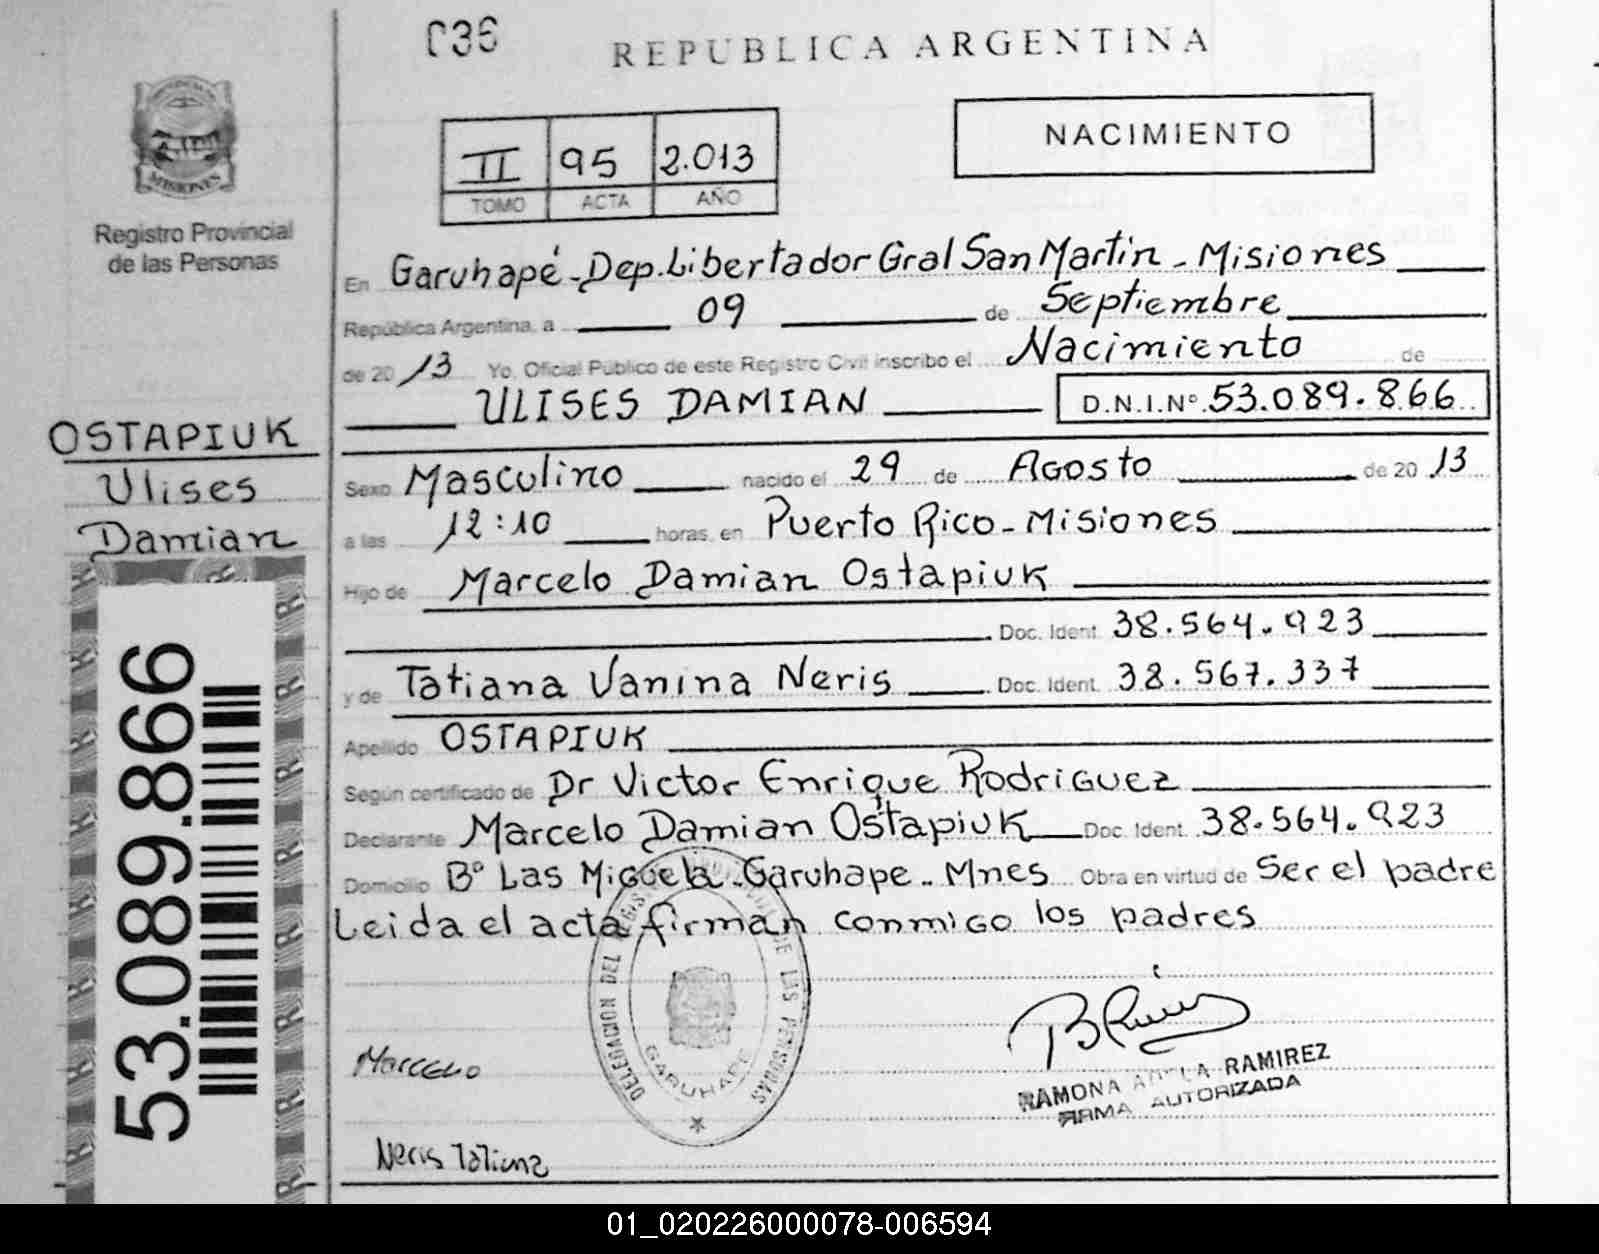 036
REPUBLICA ARGENTINA
NACIMIENTO
II 95 2.013
TOMO ACTA AÑO
MISIONES
Registro Provincial
de las Personas
En Garuhapé - Dep. Libertador Gral San Martin - Misiones
República Argentina, a 09 de Septiembre
de 20 13 Yo, Oficial Público de este Registro Civil inscribo el Nacimiento de
ULISES DAMIAN D.N.I.Nº 53.089.866
OSTAPIUK
Ulises
Damian
Sexo Masculino nacido el 29 de Agosto de 20 13
a las 12:10 horas, en Puerto Rico - Misiones
Hijo de Marcelo Damian Ostapiuk
Doc. Ident. 38.564.923
y de Tatiana Vanina Neris Doc. Ident. 38.567.337
Apellido OSTAPIUK
Según certificado de Dr Victor Enrique Rodriguez
Declarante Marcelo Damian Ostapiuk Doc. Ident. 38.564.923
Domicilio Bº Las Miguela - Garuhape - Mnes Obra en virtud de Ser el padre
Leida el acta firman conmigo los padres
53.089.866
DELEGACION DEL DE LAS PERSONAS
GARUHAPE
Marcelo
RAMONA RAMIREZ
FIRMA AUTORIZADA
Neris Tatiana
01_020226000078-006594